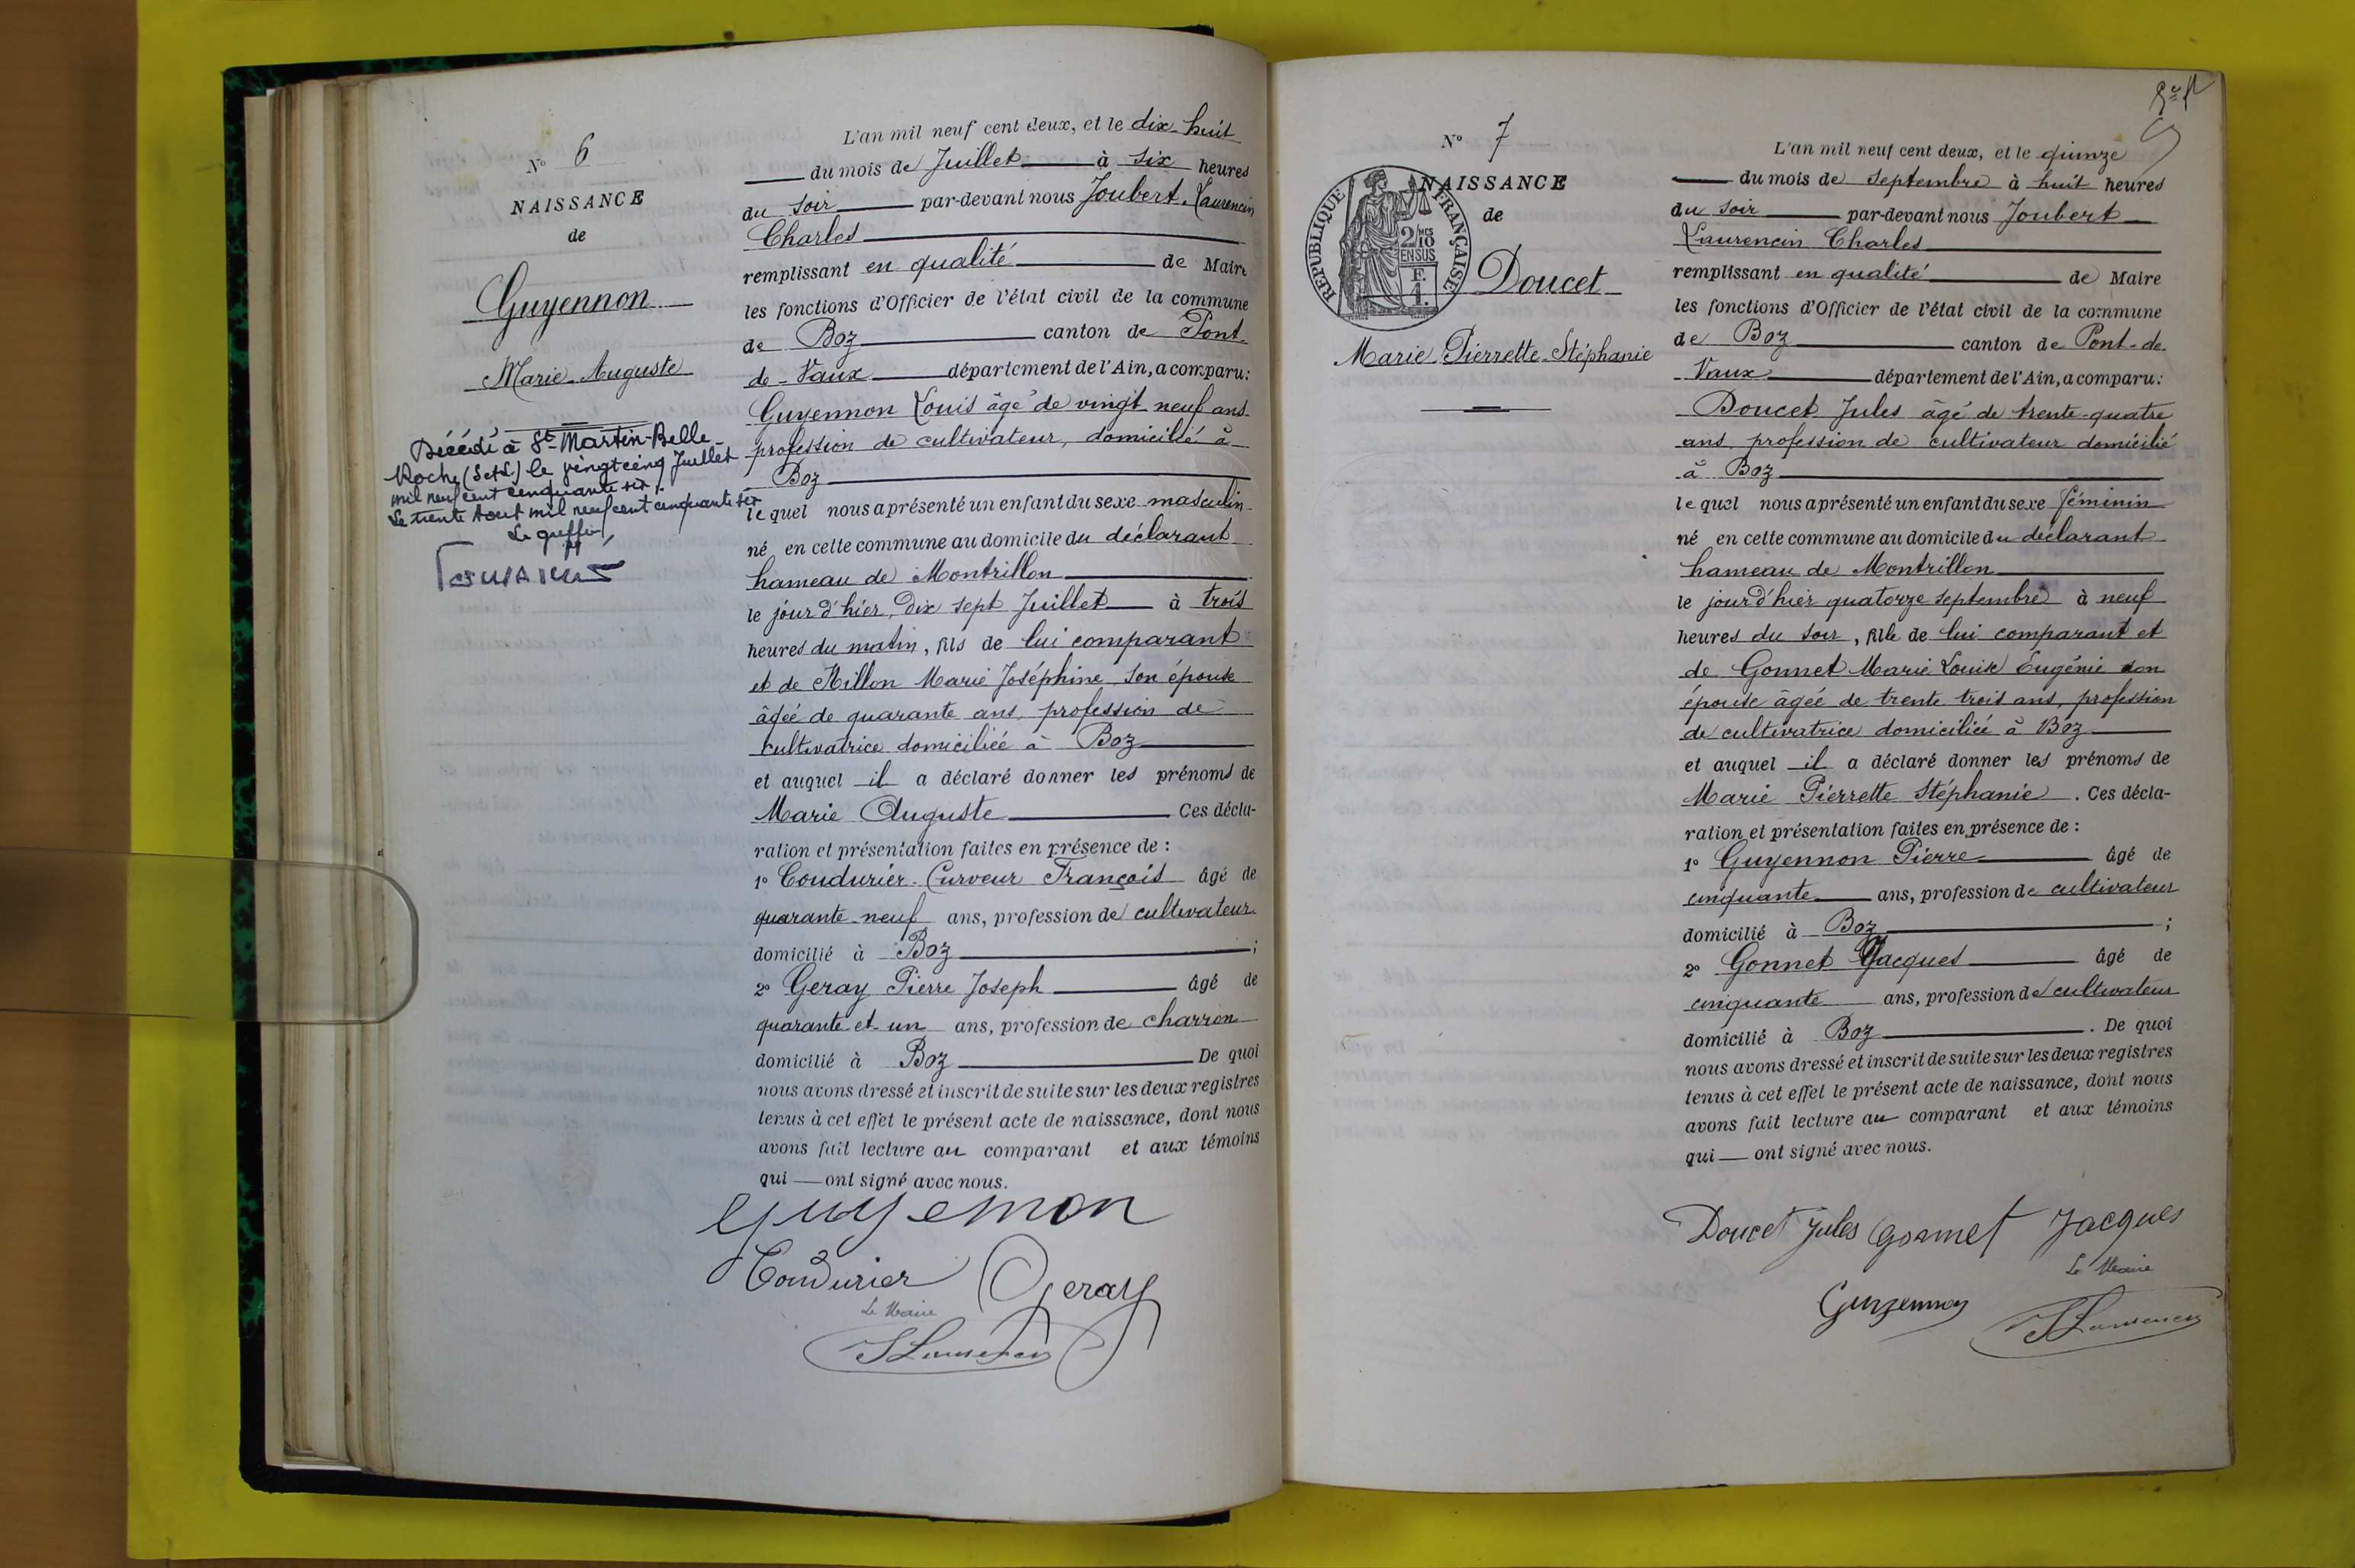 N° 6
NAISSANCE
de
Guyennon
Marie-Auguste
Décédé à St-Martin-Belle-
Roche (S et L) le vingt cinq Juillet
mil neuf cent cinquante six.
Le trente Aout mil neuf cent cinquante six
Le greffier
L'an mil neuf cent deux, et le dix-huit
du mois de Juillet à six heures
du soir par-devant nous Joubert-Laurencin
Charles
remplissant en qualité de Maire
les fonctions d'Officier de l'état civil de la commune
de Boz canton de Pont-
de-Vaux département de l'Ain, a comparu:
Guyennon Louis âgé de vingt neuf ans
profession de cultivateur, domicilié à
Boz
lequel nous a présenté un enfant du sexe masculin
né en cette commune au domicile du déclarant
hameau de Montrillon
le jour d'hier, Dix sept Juillet à trois
heures du matin, fils de lui comparant
et de Rillon Marie Joséphine son épouse
âgée de quarante ans, profession de
cultivatrice domiciliée à Boz
et auquel il a déclaré donner les prénoms de
Marie Auguste Ces décla-
ration et présentation faites en présence de :
1° Coudurier-Curveur François âgé de
quarante-neuf ans, profession de cultivateur
domicilié à Boz ;
2° Geray Pierre Joseph âgé de
quarante et un ans, profession de charron
domicilié à Boz De quoi
nous avons dressé et inscrit de suite sur les deux registres
tenus à cet effet le présent acte de naissance, dont nous
avons fait lecture au comparant et aux témoins
qui ont signé avec nous.
Guyennon
Coudurier Geray
Le Maire
JLaurencin
N° 7
NAISSANCE
de
RÉPUBLIQUE FRANÇAISE
2/10MES
EN SUS
F.
1.
Doucet
Marie-Pierrette-Stéphanie
L'an mil neuf cent deux, et le quinze
du mois de septembre à huit heures
du soir par-devant nous Joubert
Laurencin Charles
remplissant en qualité de Maire
les fonctions d'Officier de l'état civil de la commune
de Boz canton de Pont-de-
Vaux département de l'Ain, a comparu:
Doucet Jules âgé de trente-quatre
ans, profession de cultivateur domicilié
à Boz
lequel nous a présenté un enfant du sexe féminin
né en cette commune au domicile du déclarant
hameau de Montrillon
le jour d'hier quatorze septembre à neuf
heures du soir, fille de lui comparant et
de Gonnet Marie Louise Eugénie son
épouse âgée de trente trois ans, profession
de cultivatrice domiciliée à Boz
et auquel il a déclaré donner les prénoms de
Marie Pierrette Stéphanie . Ces décla-
ration et présentation faites en présence de :
1° Guyennon Pierre âgé de
cinquante ans, profession de cultivateur
domicilié à Boz ;
2° Gonnet Jacques âgé de
cinquante ans, profession de cultivateur
domicilié à Boz . De quoi
nous avons dressé et inscrit de suite sur les deux registres
tenus à cet effet le présent acte de naissance, dont nous
avons fait lecture au comparant et aux témoins
qui ont signé avec nous.
Doucet Jules Gonnet Jacques
Le Maire
Guyennon JLaurencin